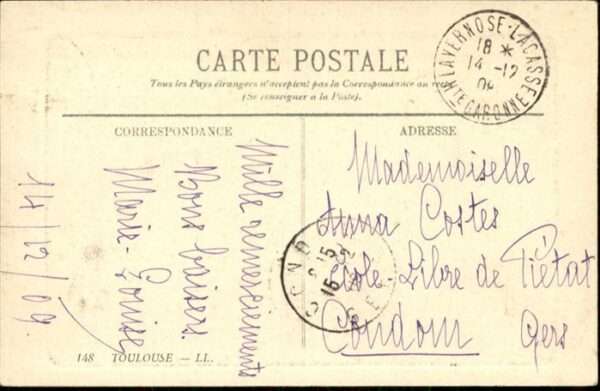 CARTE POSTALE
Tous les Pays étrangers n'acceptent pas la Correspondance au
(Se renseigner à la Poste).
LAVERNOSE-LACASSE
18 *
14 -12
09
HTE GARONNE
CORRESPONDANCE
ADRESSE
Mille remerciements
Bons baisers.
Marie-Louise
14/12/09
Mademoiselle
Anna Costes
École Libre de Piétat
Condom Gers
15
GERS
148 TOULOUSE — LL.